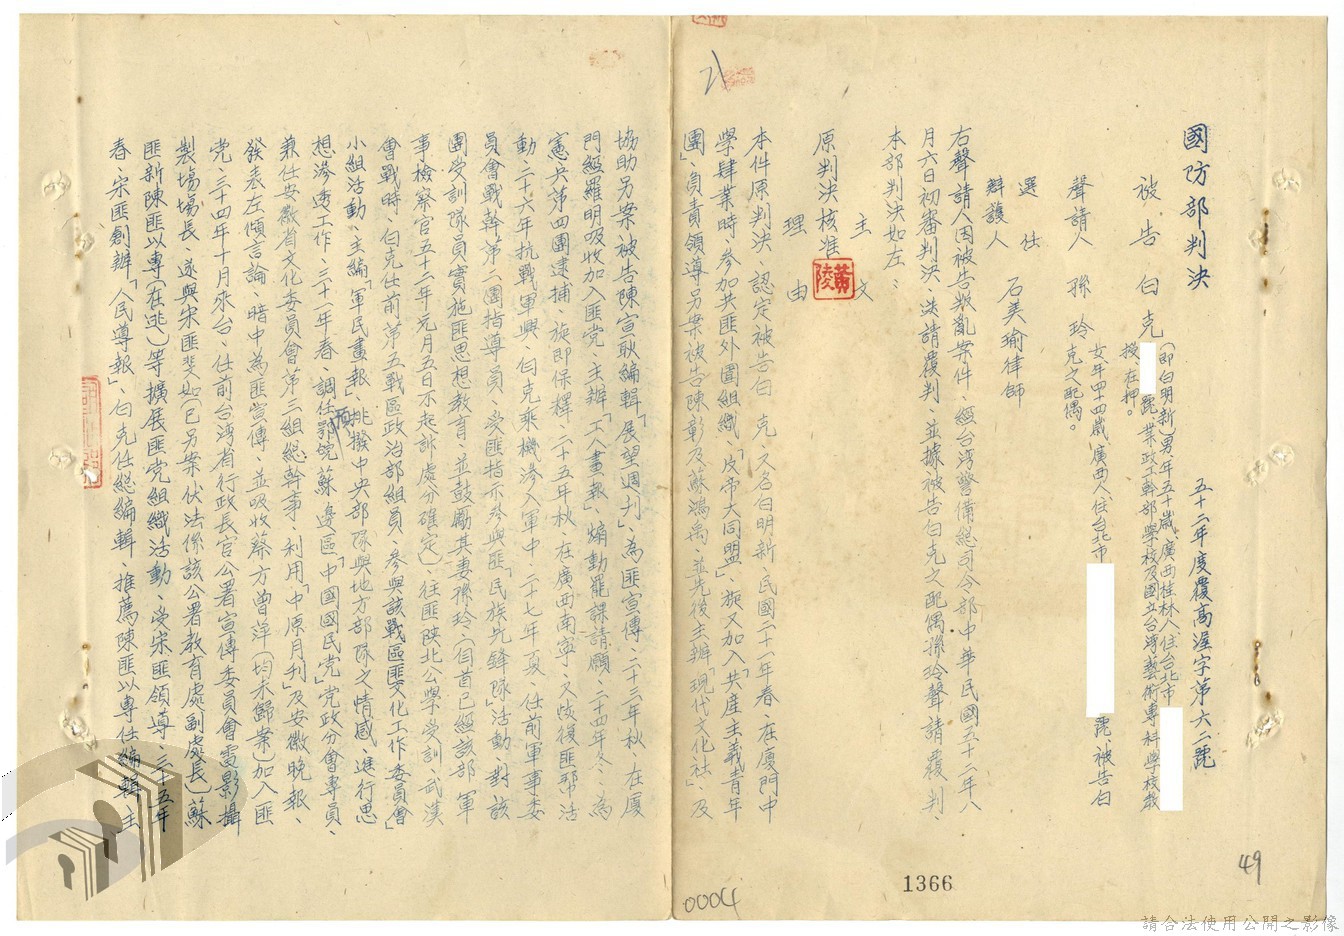 國防部判決
五十二年度覆高湜字第六二號
被告 白克(即白明新)男年五十歲廣西桂林人住台北市
號業政工幹部學校及國立台灣藝術專科學校教
授在押。
聲請人 孫玲 女年四十四歲廣西人住台北市 號被告白
克之配偶。
選任
辯護人 石美瑜律師
右聲請人因被告叛亂案件、經台湾警備總司令部中華民國五十二年八
月六日初審判決、送請覆判、並據被告白克之配偶孫玲聲請覆判、
本部判決如左:
主文
原判決核准
黃陵
理由
本件原判決、認定被告白克又名白明新、民國二十一年春、在廈門中
學肄業時、參加共匪外圍組織「反帝大同盟」、旋又加入「共産主義青年
團」、負責領導另案被告陳彰及蘇鴻禹、並先後主辦「現代文化社」、及
協助另案被告陳宣耿編輯「展望週刊」、為匪宣傳、二十三年秋、在廈
門經羅明吸收加入匪党、主辦「工人畫報」、煽動罷課請願、二十四年冬、為
憲兵第四團逮捕、旋即保釋、二十五年秋、在廣西南寧、又恢復匪帮活
動、二十六年抗戰軍興、白克乘機滲入軍中、二十七年夏、任前軍事委
員會戰幹第二團指導員、受匪指示參與匪「民族先鋒隊」活動、對該
團受訓隊員實施匪思想教育、並鼓勵其妻孫玲、(自首已經該部軍
事檢察官五十二年元月五日不起訴處分確定)往匪陝北公學受訓、武漢
會戰時、白克任前第五戰區政治部組員、參與該戰區匪「文化工作委員會」
小組活動、主編「軍民畫報」、挑撥中央部隊與地方部隊之情感、進行思
想滲透工作、三十一年春、調任鄂豫皖蘇邊區「中國國民党」党政分會專員、
兼任安徽省文化委員會第三組總幹事、利用「中原月刊」及安徽晚報、
發表左傾言論、暗中為匪宣傳、並吸收蔡方曾萍(均未歸案)加入匪
党、三十四年十月來台、任前台湾省行政長官公署宣傳委員會電影攝
製場場長、遂與宋匪斐如(已另案伏法係該公署教育處副處長)蘇
匪新陳匪以專(在逃)等擴展匪党組織活動、受宋匪領導、三十五年
春、宋匪創辦「人民導報」、白克任総編輯、推薦陳匪以專任編輯主
1366
0004
49
請合法使用公開之影像